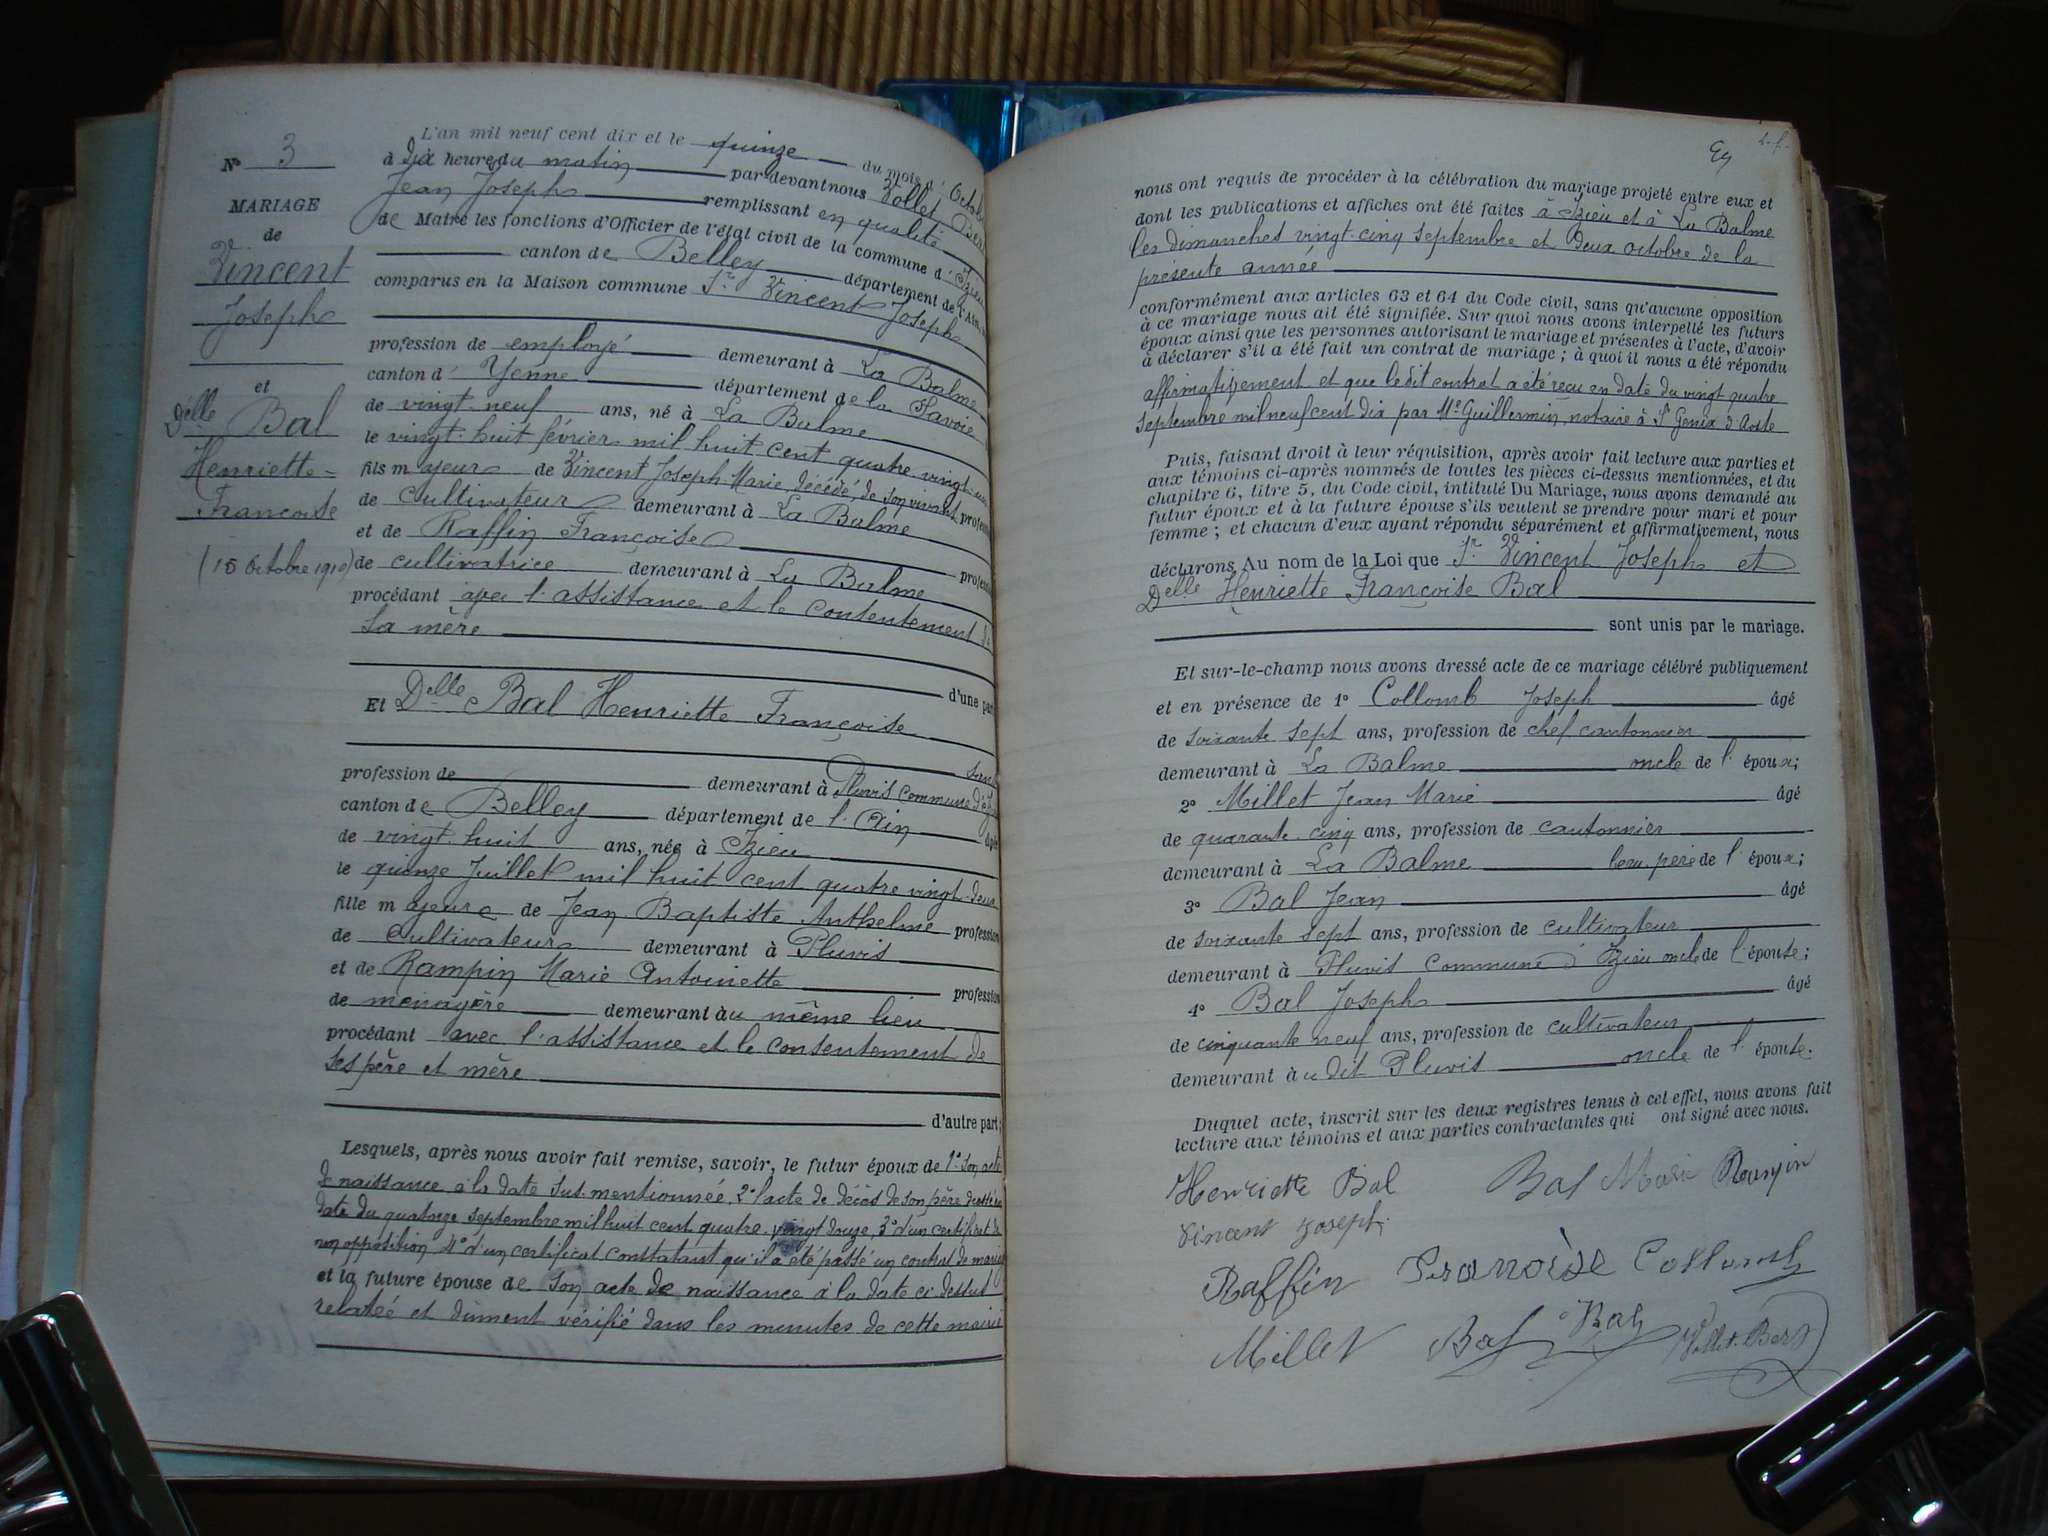 N° 3
MARIAGE
de
Vincent
Joseph
et
Delle Bal
Henriette-
Françoise
(15 Octobre 1910)
L'an mil neuf cent dix et le quinze du mois d' Octobre
à dix heures du matin par devant nous Vollet
Jean Joseph remplissant en qualité
de Maire les fonctions d'Officier de l'état civil de la commune d' Izieu
canton de Belley département de l'Ain,
comparus en la Maison commune Sr Vincent Joseph
profession de employé demeurant à La Balme
canton d' Yenne département de la Savoie
de vingt-neuf ans, né à La Balme
le vingt-huit février mil huit cent quatre vingt-un
fils majeur de Vincent Joseph-Marie, décédé, de son vivant, profession
de cultivateur demeurant à La Balme
et de Raffin Françoise
profession
de cultivatrice demeurant à La Balme
procédant avec l'assistance et le consentement de
sa mère
d'une part
Et Delle Bal Henriette Françoise
sans
profession de demeurant à Pluvis commune d'Izieu
canton de Belley département de l'Ain
de vingt-huit ans, née à Izieu
le quinze Juillet mil huit cent quatre vingt-deux
fille majeure de Jean-Baptiste Anthelme profession
de cultivateur demeurant à Pluvis
et de Rampin Marie Antoinette profession
de ménagère demeurant au même lieu
procédant avec l'assistance et le consentement de
ses père et mère
d'autre part;
Lesquels, après nous avoir fait remise, savoir, le futur époux de 1° son acte
de naissance à la date sus-mentionnée, 2° l'acte de décès de son père
date du quatorze septembre mil huit cent quatre-vingt douze, 3° d'un certificat de
non opposition 4° d'un certificat constatant qu'il a été passé un contrat de mariage
et la future épouse de son acte de naissance à la date ci-dessus
relatée et dûment vérifié dans les minutes de cette mairie
nous ont requis de procéder à la célébration du mariage projeté entre eux et
dont les publications et affiches ont été faites à Izieu et à La Balme
les dimanches vingt-cinq septembre et deux octobre de la
présente année
conformément aux articles 63 et 64 du Code civil, sans qu'aucune opposition
à ce mariage nous ait été signifiée. Sur quoi nous avons interpellé les futurs
époux ainsi que les personnes autorisant le mariage et présentes à l'acte, d'avoir
à déclarer s'il a été fait un contrat de mariage; à quoi il nous a été répondu
affirmativement et que ledit contrat a été reçu en date du vingt quatre
septembre mil neuf cent dix par Me Guillermin, notaire à St Genix d'Aoste
Puis, faisant droit à leur réquisition, après avoir fait lecture aux parties et
aux témoins ci-après nommés de toutes les pièces ci-dessus mentionnées, et du
chapitre 6, titre 5, du Code civil, intitulé Du Mariage, nous avons demandé au
futur époux et à la future épouse s'ils veulent se prendre pour mari et pour
femme; et chacun d'eux ayant répondu séparément et affirmativement, nous
déclarons Au nom de la Loi que Sr Vincent Joseph et
Delle Henriette Françoise Bal
sont unis par le mariage.
Et sur-le-champ nous avons dressé acte de ce mariage célébré publiquement
et en présence de 1° Collomb Joseph âgé
de soixante sept ans, profession de chef cantonnier
demeurant à La Balme oncle de l'époux;
2° Millet Jean Marie âgé
de quarante-cinq ans, profession de cantonnier
demeurant à La Balme beau-père de l'époux;
3° Bal Jean âgé
de soixante sept ans, profession de cultivateur
demeurant à Pluvis commune d'Izieu oncle de l'épouse;
4° Bal Joseph âgé
de cinquante neuf ans, profession de cultivateur
demeurant audit Pluvis oncle de l'épouse.
Duquel acte, inscrit sur les deux registres tenus à cet effet, nous avons fait
lecture aux témoins et aux parties contractantes qui ont signé avec nous.
Henriette Bal Bal Marie Rampin
Vincent Joseph
Raffin Franoise Collomb
Millet Bal Bal Vollet-Ber